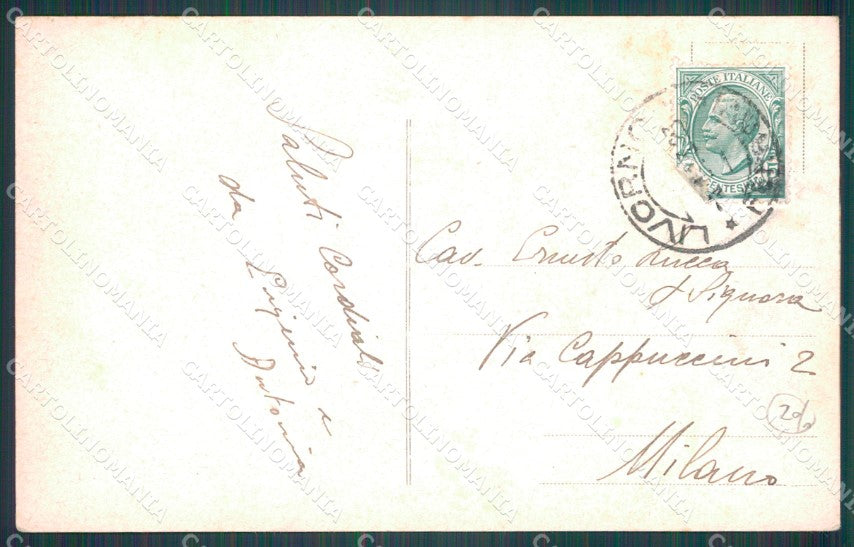 Saluti Cordiali
da Eugenio e
Antonia
POSTE ITALIANE
LIVORNO
Cav. Ernesto Lucca
& Signora
Via Cappuccini 2
Milano
CARTOLINOMANIA